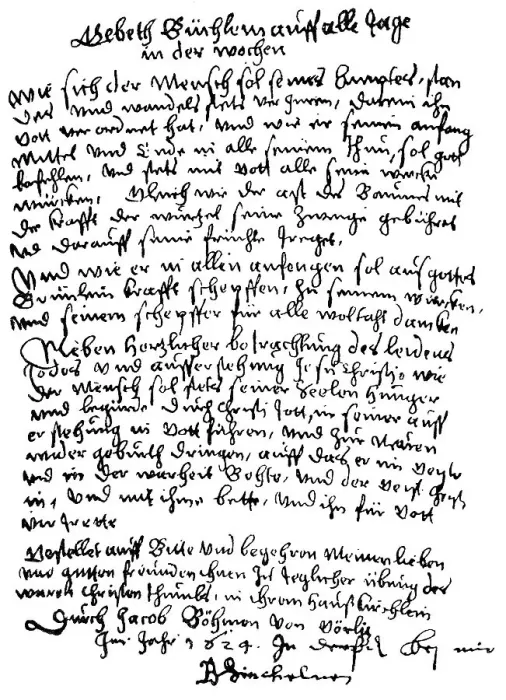 Gebeth Büchlein auff alle Tage
in der wochen
Wie sich der Mensch sol seines Ampptes, stan
des Vnd wandels stets er Inern, darein ihn
Gott ver ordnet hat, Vnd wie er seinen anfang
Mittel Vnd Ende in alle seinem Thun, sol gott
befehlen, Vnd stets mit Gott alle seine wercke
würcken, Gleich wie der ast des Baumes mit
der krafft der wurtzel seine Zweige gebühret
vnd darauff seine früchte treget,
Vnd wie er in allen anfengen sol aus gottes
Brünlein krafft schepffen, zu seinem wircken,
Vnd seinem schepffer für alle woltaht dancken
Neben Hertzlicher betrachtung des leidens
todes Vnd aufferstehung Jesu Christi, wie
der Mensch sol stets seiner Seelen Hunger
Vnd begirde durch Christi tott, in seiner auff
er stehung in Gott führen, Vnd zur Neuen
wider geburth dringen, auff das er im geiste
Vnd in der warheit Behte, Vnd der
Vnd mit ihme bette, Vnd ihn für Gott
ver trette
Gestellet auff Bitte Vnd begehren Meiner lieben
Vnd gutten freunden ihnen zu teglicher übung des
waren Christen thumbs, in ihrem Hauß kirchlein
Durch Jacob Böhmen Von Görlitz
Im Jahr 1624. In bei mir